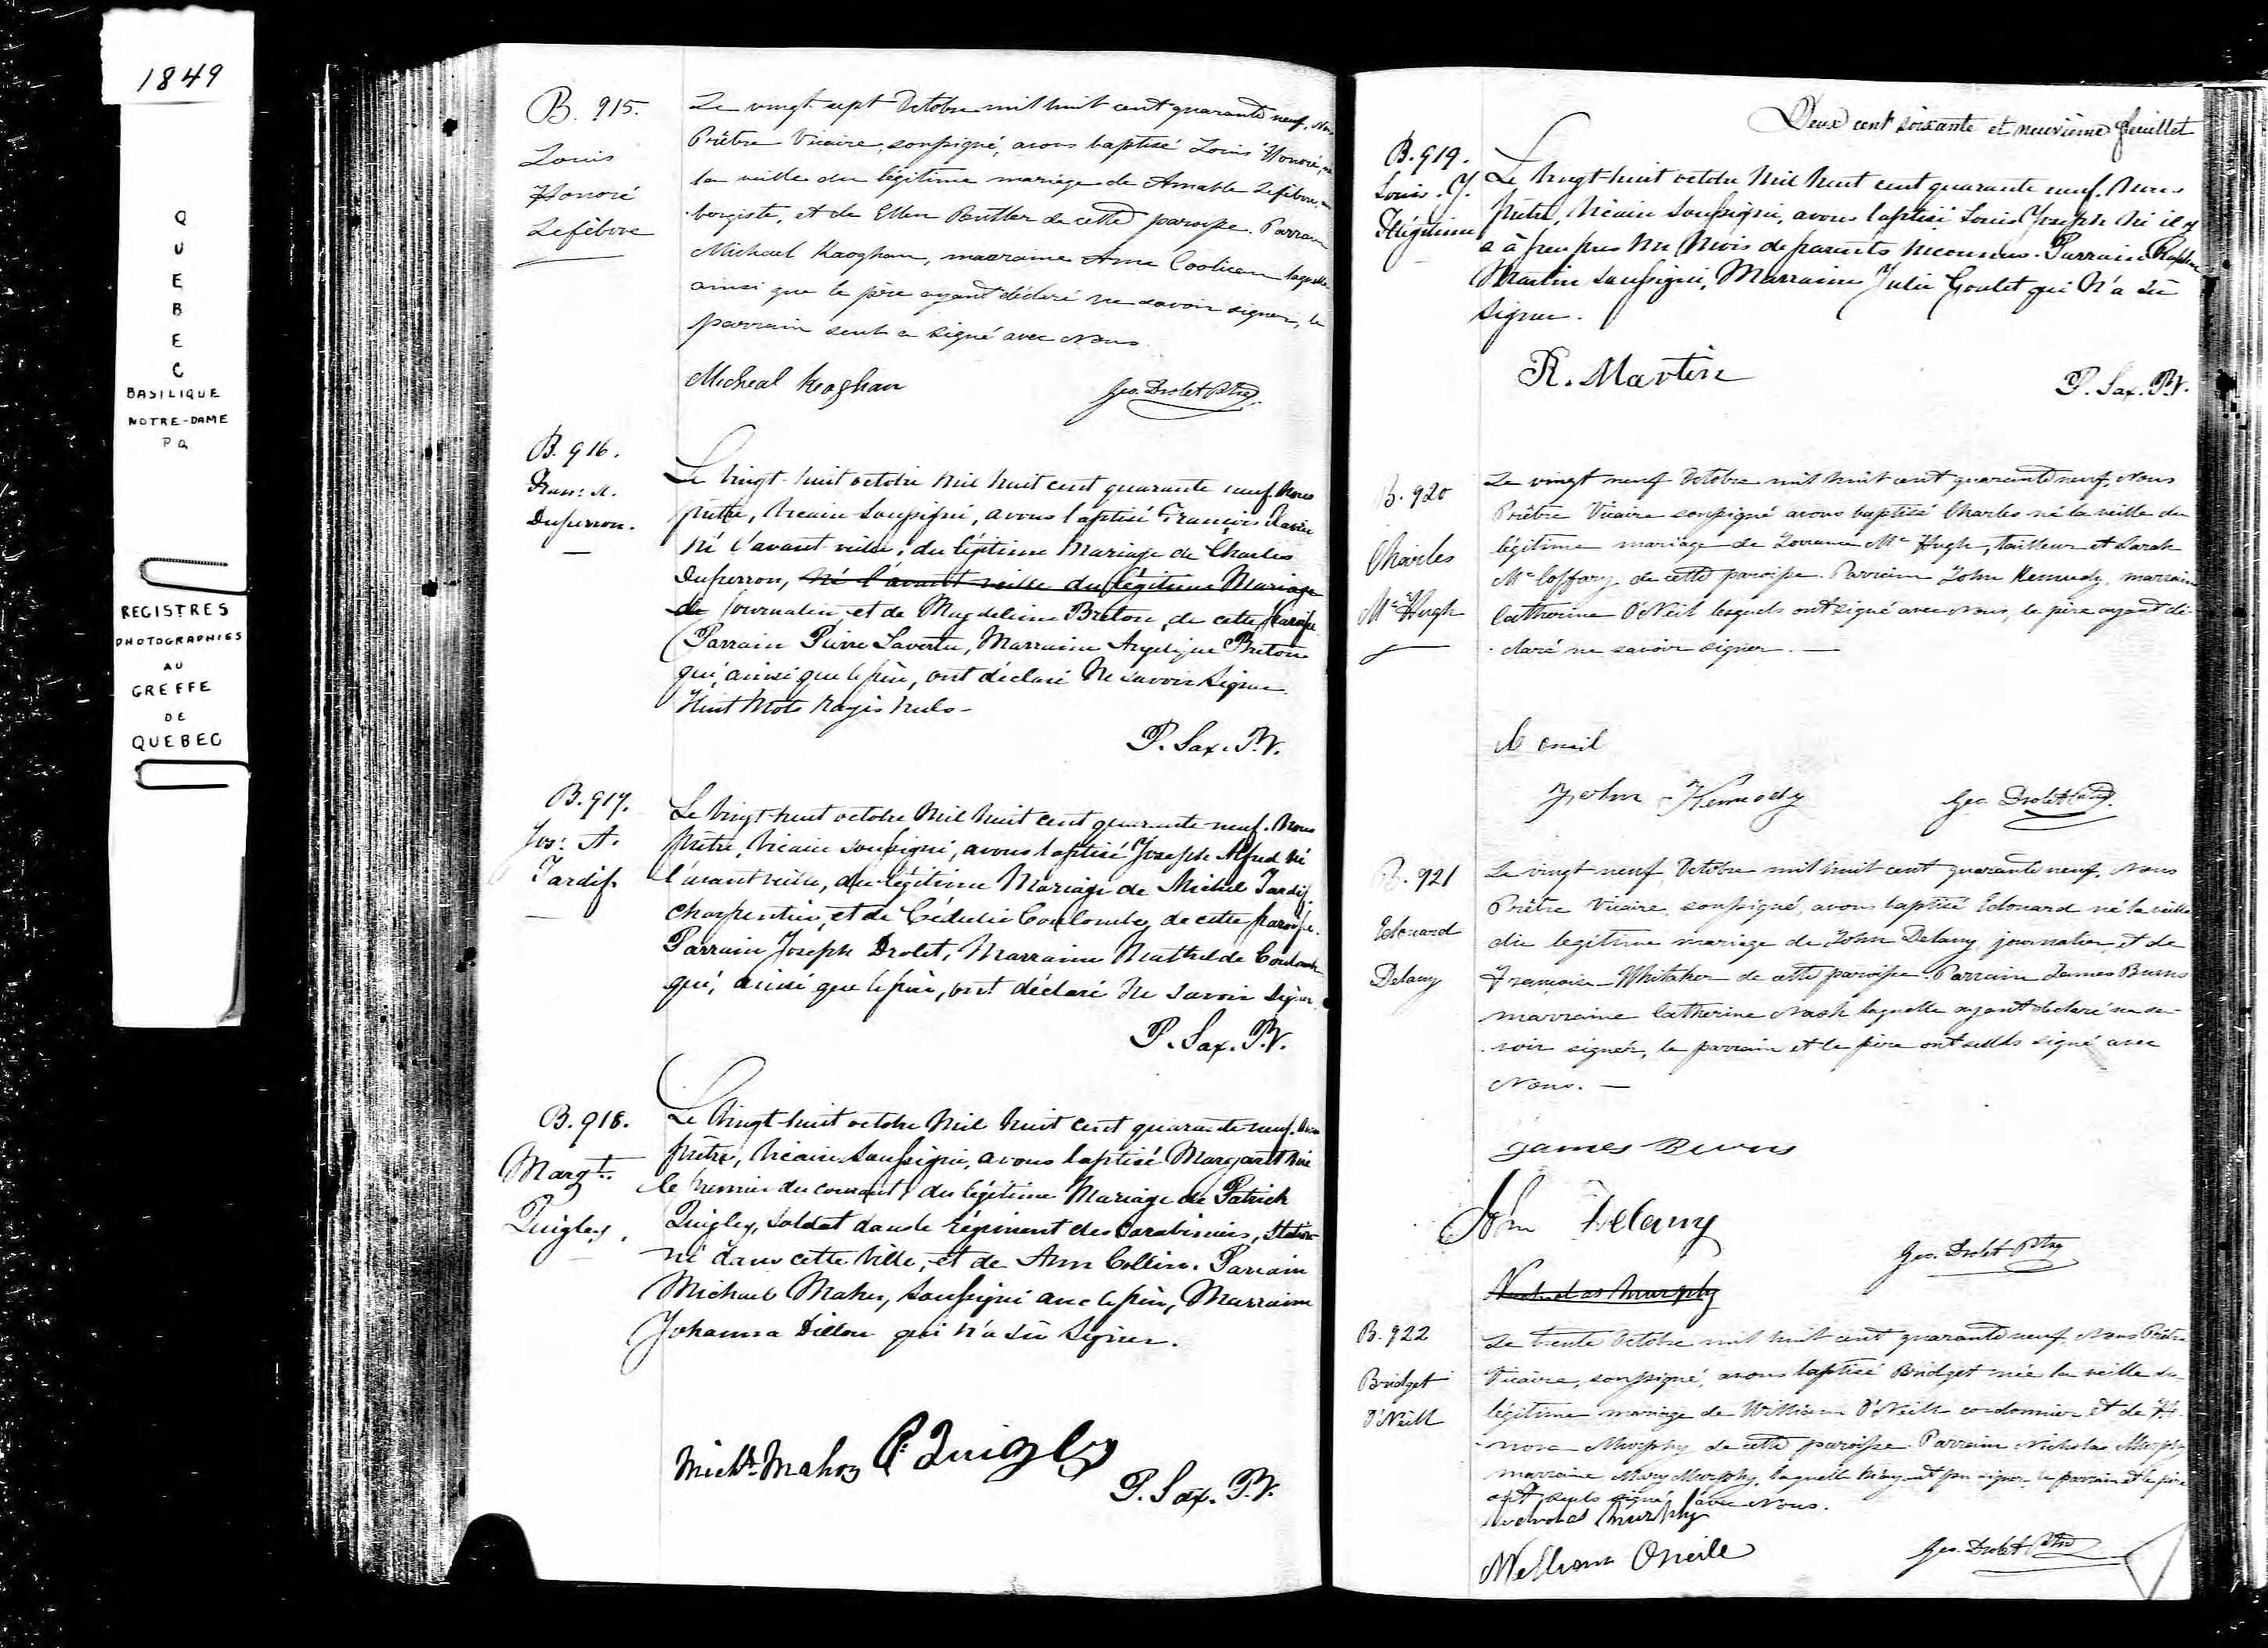 1849
QUEBEC
BASILIQUE
NOTRE-DAME
PQ
REGISTRES
PHOTOGRAPHIES
AU
GREFFE
DE
QUEBEC
B. 915.
Louis
Honoré
Lefebvre
Le vingt sept Octobre mil huit cent quarante neuf, Nous
Prêtre Vicaire, soussigné, avons baptisé Louis Honoré, né
la veille du légitime mariage de Amable Lefebvre, au
bergiste, et de Ellen Buttler de cette paroisse. Parrain
Michael Kaoghan, marraine Anne laquelle
ainsi que le père ayant déclaré ne savoir signer, le
parrain seul a signé avec Nous
Micheal Keoghan
Geo. Drolet Ptre
B. 916.
Fran: X.
Duperron.
Le vingt-huit octobre mil huit cent quarante neuf. Nous
prêtre, vicaire soussigné, avons baptisé François Xavier
né l'avant veille, du légitime Mariage de Charles
Duperron, né l'avant veille du légitime Mariage
de journalier, et de Magdeleine Breton, de cette paroisse
Parrain Pierre Lavertu, Marraine Angelique Breton
qui, ainsi que le père, ont déclaré ne savoir signer
Huit mots rayés nuls -
P. Sax. P.V.
B. 917.
Jos: A.
Tardif
Le vingt-huit octobre mil huit cent quarante neuf. Nous
prêtre, vicaire soussigné, avons baptisé Joseph Alfred né
l'avant veille, du légitime Mariage de Michel Tardif,
charpentier, et de Cédulie Coulombe, de cette paroisse.
Parrain Joseph Drolet, Marraine Mathilde Coulombe
qui, ainsi que le père, ont déclaré ne savoir signer
P. Sax. P.V.
B. 918.
Margt.
Quigley.
Le vingt-huit octobre mil huit cent quarante neuf. Nous
prêtre, vicaire soussigné, avons baptisé Margaret née
le premier du courant, du légitime Mariage de Patrick
Quigley, soldat dans le régiment des Carabiniers, station
né dans cette ville, et de Ann Collins. Parrain
Michael Maher, soussigné avec le père, Marraine
Johanna Dillon qui n'a su signer.
Michl. Mahor P. Quigley
P. Sax. P.V.
Deux cent soixante et neuvième feuillet
B. 919.
Louis. J.
Illégitime
Le vingt-huit octobre mil huit cent quarante neuf. Nous
prêtre, vicaire soussigné, avons baptisé Louis Joseph né il y
a à peu près un mois de parents inconnus. Parrain
Martin soussigné, Marraine Julie Goulet qui n'a su
signer.
R. Martin
P. Sax. P.V.
B. 920
Charles
Mc Hugh
Le vingt neuf Octobre mil huit cent quarante neuf, Nous
Prêtre Vicaire soussigné avons baptisé Charles né la veille du
légitime mariage de Mc Hugh, tailleur et Sarah
Mc Coffary de cette paroisse. Parrain John Kennedy, marraine
Catherine O'Neil lesquels ont signé avec Nous, le père ayant dé
claré ne savoir signer. —
John Kennedy
Geo. Drolet Ptre
B. 921
Edouard
Delany
Le vingt neuf Octobre mil huit cent quarante neuf, Nous
Prêtre Vicaire, soussigné, avons baptisé Edouard né la veille
du légitime mariage de John Delany journalier, et de
Françoise Whitaker de cette paroisse. Parrain James Burns
marraine Catherine Nash laquelle ayant déclaré ne sa-
voir signer, le parrain et le père ont seuls signé avec
Nous. —
James Burns
John Delany
Geo. Drolet Ptre
Nicholas Murphy
B. 922
Bridget
O'Neill
Le trente Octobre mil huit cent quarante neuf, Nous Prêtre
Vicaire, soussigné, avons baptisé Bridget née la veille du
légitime mariage de William O'Neill cordonnier et de H-
nora Murphy de cette paroisse. Parrain Nicholas Murphy
marraine Mary Murphy, laquelle n'ayant pu signer, le parrain et le père
ont seuls signé avec Nous.
Nicholas Murphy
William Oneile
Geo. Drolet Ptre